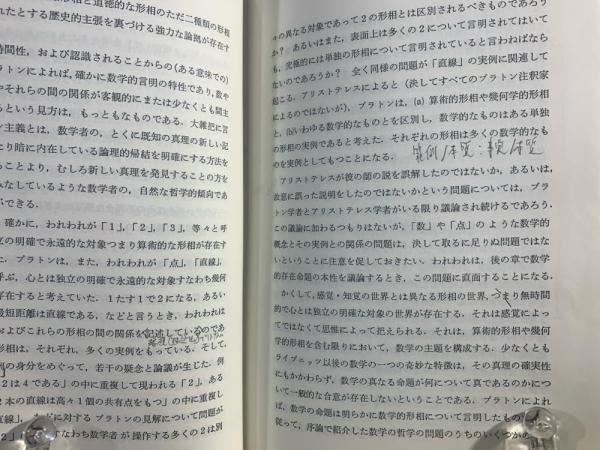 形相と道徳的な形相のただ二種類の形相
れたとする歴史的主張を裏づける強力な論拠が存在す
時間性，および認識されることからの(ある意味での)
ラトンによれば，確かに数学的言明の特性であり，数や
やそれらの間の関係が客観的にまたは少なくとも間主
いう見方は，もっともなものである．大雑把に言
ン主義とは，数学者の，とくに既知の真理の新しい記
り暗に内在している論理的帰結を明確にする方法を
ることより，むしろ新しい真理を発見することの方を
みなしているような数学者の，自然な哲学的傾向であ
できる．
確かに，われわれが「1」，「2」，「3」，等々と呼
立の明確で永遠的な対象つまり算術的な形相が存在す
プラトンは，また，われわれが「点」，「直線」，
呼ぶ，心とは独立の明確で永遠的な対象すなわち幾何
存在すると考えていた．1たす1で2になる，あるい
最短距離は直線である，などと言うとき，われわれは
およびこれらの形相の間の関係を記述しているのであ
形相は，それぞれ，多くの実例をもっている．そして，
例の身分をめぐって，若干の疑念と議論が生じた．例
2は4である」の中に重複して現われる「2」，ある
2本の直線は高々1個の共有点をもつ」の中に重複し
直線」，に対するプラトンの見解について問題が
2」すなわち数学者が操作する多くの2は別
々の異なる対象であって2の形相とは区別されるべきものであろう
か？ あるいはまた，表面上は多くの2について言明されてはいて
も，究極的には単独の形相について言明されていると言わねばなら
ないのであろうか？ 全く同様の問題が「直線」の実例に関連して
起こる．アリストテレスによると(決してすべてのプラトン注釈家
によるのではないが)，プラトンは，(a) 算術的形相や幾何学的形相
と，(b)いわゆる数学的なものとを区別し，数学的なものはある単独
の形相の実例であると考えた．それぞれの形相は多くの数学的なも
のを実例としてもつことになる．
実例/本質：
アリストテレスが彼の師の説を誤解したのではないか，あるいは，
故意に誤った説明をしたのではないかという問題については，プラ
トン学者とアリストテレス学者がいる限り議論され続けるであろう．
この議論に加わるつもりはないが，「数」や「点」のような数学的
概念とその実例との関係の問題は，決して取るに足りぬ問題ではな
いということに注意を促しておきたい．われわれは，後の章で数学
的存在命題の本性を議論するとき，この問題に直面することになる．
かくして，感覚・知覚の世界とは異なる形相の世界，つまり無時間
的で心とは独立の明確な対象の世界が存在する．それは感覚によっ
てではなくて思惟によって把えられる．それは，算術的形相や幾何
学的形相を含む限りにおいて，数学の主題を構成する．少なくとも
ライプニッツ以後の数学の一つの奇妙な特徴は，その真理の確実性
にもかかわらず，数学の真なる命題が何について真であるのかにつ
いて一般的な合意が存在しないということである．プラトンによれ
ば，数学の命題は明らかに数学的形相について言明したもの
従って，序論で紹介した数学の哲学の問題のうちのいくつかの